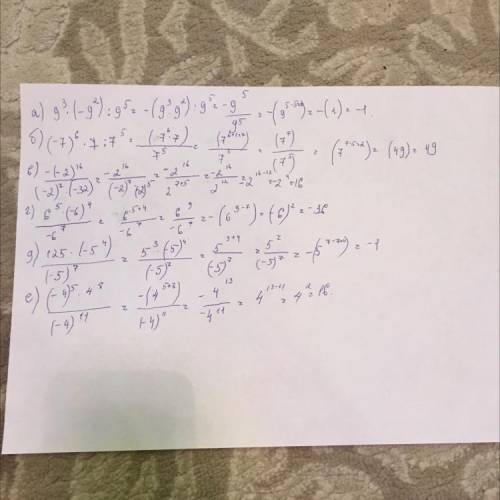 а) 9³·(-9²):9⁵ = -(9³·9²):9⁵ = -9⁵/9⁵ = -(9⁵⁻⁵⁼⁰) = -(1) = -1.
б) (-7)⁶·7:7⁵ = (7⁶·7)/7⁵ = (7⁶⁺¹⁼⁷)/7⁵ = (7⁷)/(7⁵) = (7⁷⁻⁵⁼²) = (49) = 49
в) -(-2)¹⁶/(-2)⁷·(-32) = -2¹⁶/(-2)⁷·(-2)⁵ = -2¹⁶/2⁷⁺⁵ = -2¹⁶/2¹² = -2¹⁶⁻¹² = -2⁴ = 16
г) 6⁵·(-6)⁴/-6⁷ = 6⁵⁺⁴/-6⁷ = 6⁹/-6⁷ = -(6⁹⁻⁷) = (-6)² = -36
д) 125·(-5⁴)/(-5)⁷ = 5³·(-5)⁴/(-5)⁷ = 5³⁺⁴/(-5)⁷ = 5⁷/(-5)⁷ = -(5⁷⁻⁷⁼⁰) = -1
е) (-4)⁵·4⁸/(-4)¹¹ = -(4⁵⁺⁸)/(-4)¹¹ = -4¹³/-4¹¹ = 4¹³⁻¹¹ = 4² = 16.